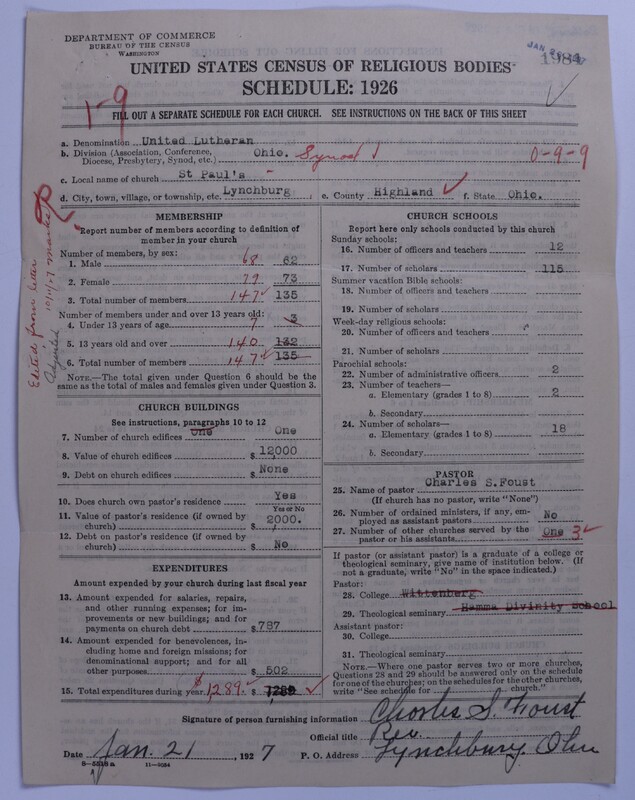 DEPARTMENT OF COMMERCE
BUREAU OF THE CENSUS
WASHINGTON
1984
UNITED STATES CENSUS OF RELIGIOUS BODIES
SCHEDULE: 1926
1-9
FILL OUT A SEPARATE SCHEDULE FOR EACH CHURCH. SEE INSTRUCTIONS ON THE BACK OF THIS SHEET
a. Denomination United Lutheran
b. Division (Association, Conference, Diocese, Presbytery, Synod, etc.) Ohio. Synod 0-9-9
c. Local name of church St Paul's
d. City, town, village, or township, etc. Lynchburg; e. County Highland f. State Ohio.
Edited from letter
MEMBERSHIP
Report number of members according to definition of member in your church
Number of members, by sex:
1. Male 68 62
2. Female 79 73
3. Total number of members 147 135
Number of members under and over 13 years old:
4. Under 13 years of age 7 3
5. 13 years old and over 140 132
6. Total number of members 147 135
NOTE.—The total given under Question 6 should be the same as the total of males and females given under Question 3.
CHURCH BUILDINGS
See instructions, paragraphs 10 to 12
7. Number of church edifices One One
8. Value of church edifices $ 12000
9. Debt on church edifices $ None
10. Does church own pastor's residence Yes
Yes or No
11. Value of pastor's residence (if owned by church) $ 2000.
12. Debt on pastor's residence (if owned by church) $ No
EXPENDITURES
Amount expended by your church during last fiscal year
13. Amount expended for salaries, repairs, and other running expenses; for improvements or new buildings; and for payments on church debt $ 787
14. Amount expended for benevolences, including home and foreign missions; for denominational support; and for all other purposes $ 502
15. Total expenditures during year $1,289. $ 1289
CHURCH SCHOOLS
Report here only schools conducted by this church
Sunday schools:
16. Number of officers and teachers 12
17. Number of scholars 115
Summer vacation Bible schools:
18. Number of officers and teachers
19. Number of scholars
Week-day religious schools:
20. Number of officers and teachers
21. Number of scholars
Parochial schools:
22. Number of administrative officers 2
23. Number of teachers—
a. Elementary (grades 1 to 8) 2
b. Secondary
24. Number of scholars—
a. Elementary (grades 1 to 8) 18
b. Secondary
PASTOR
25. Name of pastor Charles S.Foust
(If church has no pastor, write "None")
26. Number of ordained ministers, if any, employed as assistant pastors No
27. Number of other churches served by the pastor or his assistants One 3
If pastor (or assistant pastor) is a graduate of a college or theological seminary, give name of institution below. (If not a graduate, write "No" in the space indicated.)
Pastor:
28. College Wittenberg
29. Theological seminary Hamma Divinity School
Assistant pastor:
30. College
31. Theological seminary
NOTE.—Where one pastor serves two or more churches, Questions 28 and 29 should be answered only on the schedule for one of the churches; on the schedules for the other churches, write "See schedule for church."
Signature of person furnishing information Charles S. Foust
Official title Rev.
Date Jan. 21, 1927 P. O. Address Lynchburg Ohio
8-5518a 11-9084